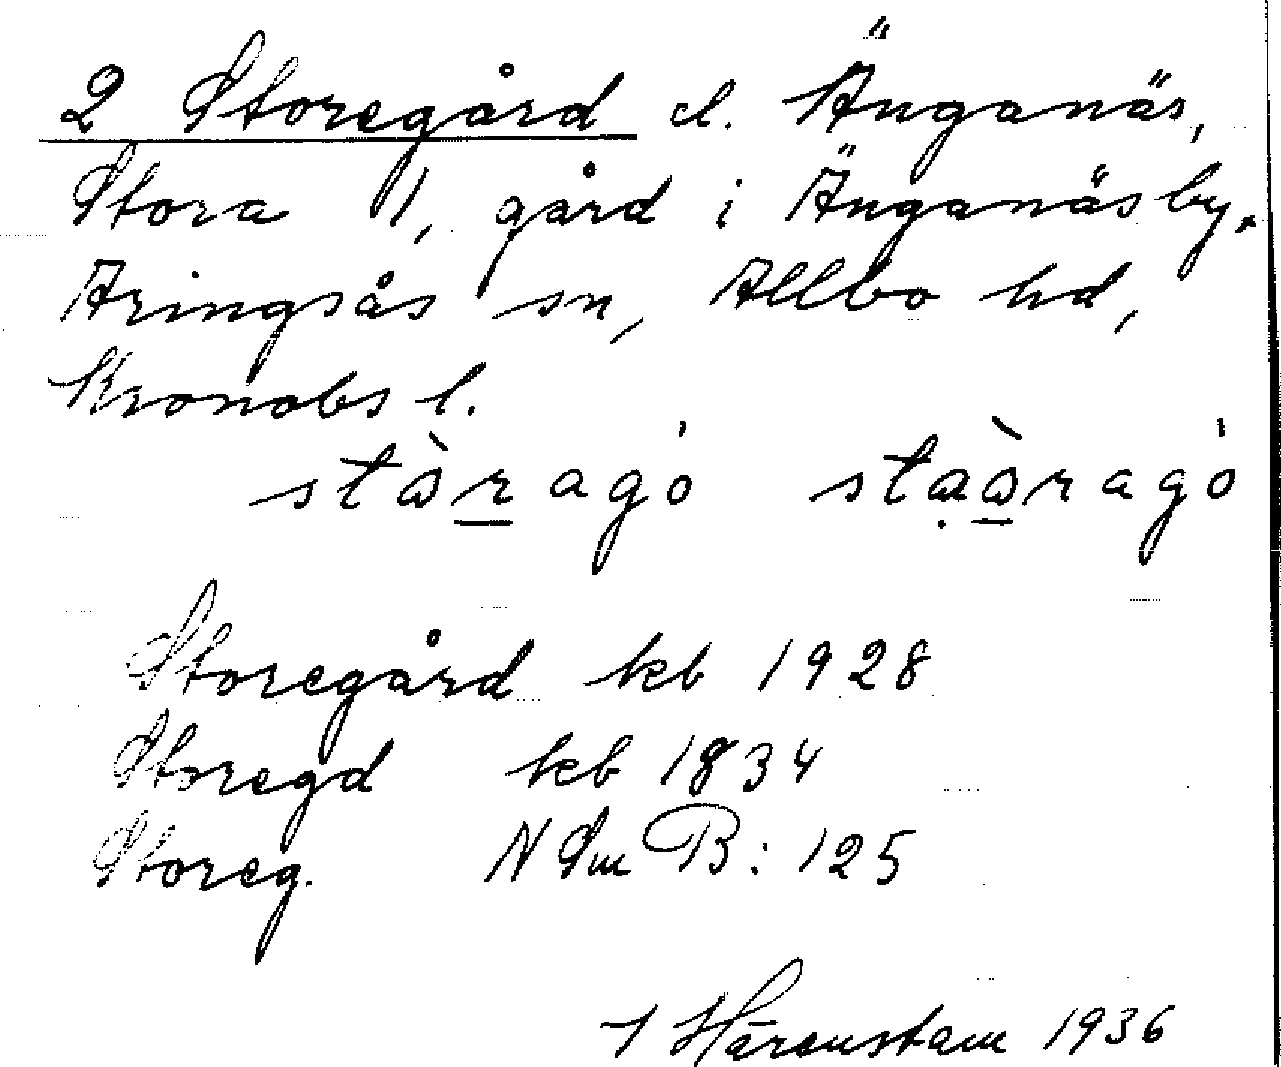 2 Storegård el. Änganäs,
Stora 1, gård i Änganäs by,
Aringsås sn, Allbo hd,
Kronobs l.
stɷ̀ragó staɷ̀ragó
Storegård kb 1928
Storegd kb 1834
Storeg. N Sm B: 125
I Härenstam 1936